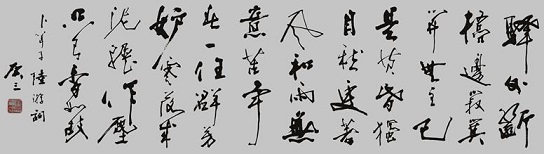 驛外斷
橋邊寂寞
開無主已
是黄昏獨
自愁更著
風和雨無
意苦爭
春一任群芳
妒零落成
泥碾作塵
只有香如故
卜算子 陸游詞